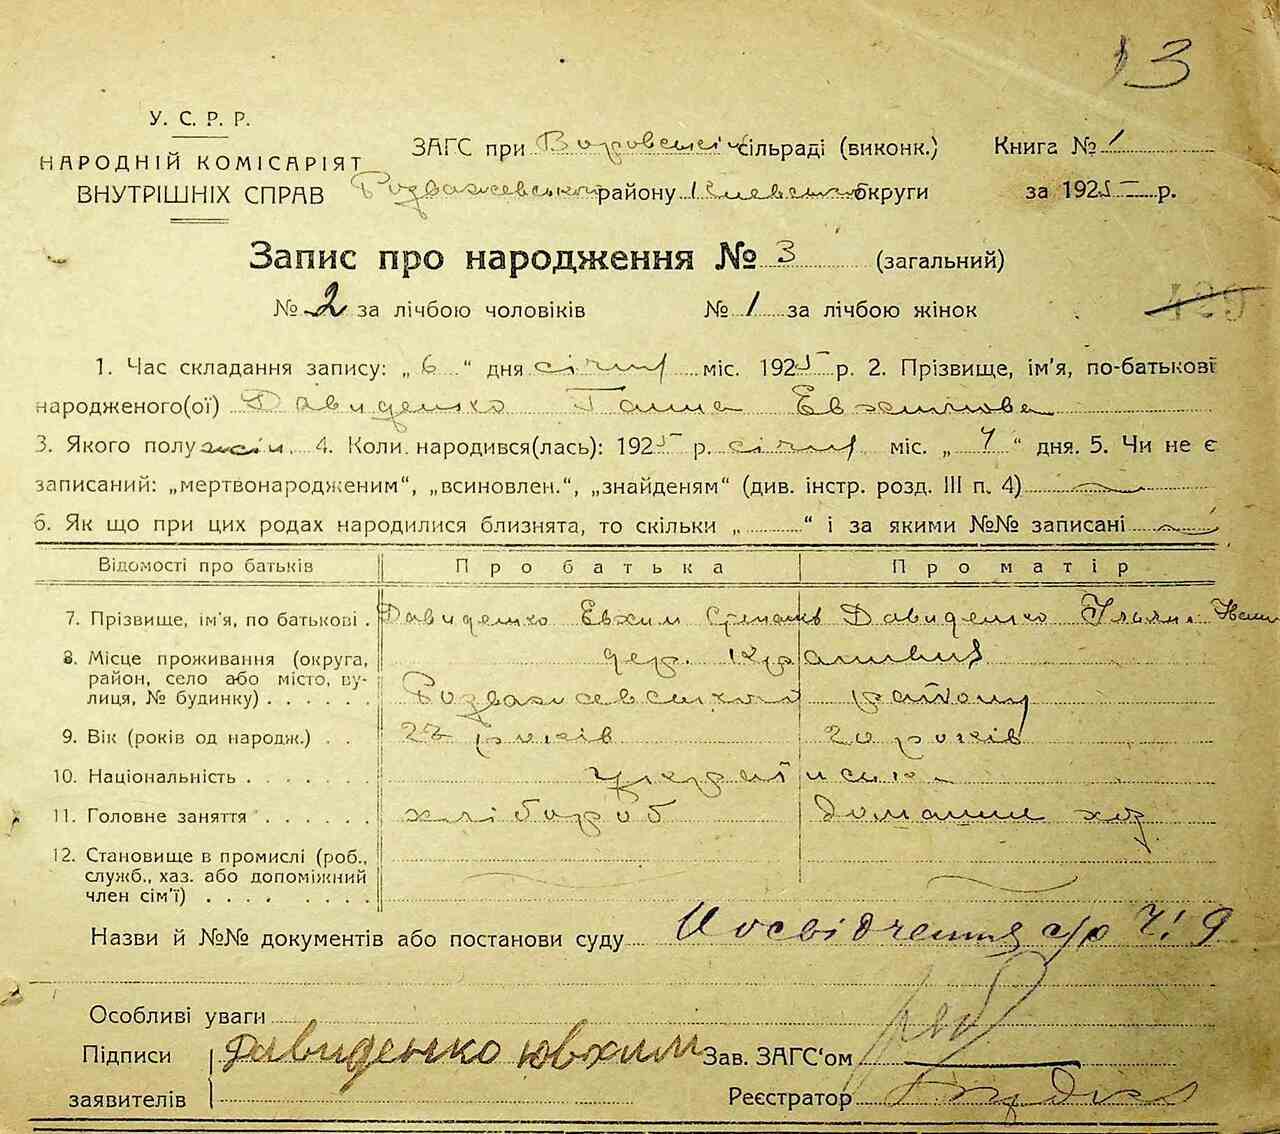 13
У. С. Р. Р.
НАРОДНІЙ КОМІСАРІЯТ
ВНУТРІШНІХ СПРАВ
ЗАГС при сільраді (виконк.) Книга № 1
Розважевського району Киевської округи за 1925 р.
Запис про народження № 3 (загальний)
№ 2 за лічбою чоловіків № 1 за лічбою жінок
1. Час складання запису: „ 6 “ дня січня міс. 1925 р. 2. Прізвище, ім'я, по-батькові
народженого(ої) Давиденко Ганна Евхимова
3. Якого полу жін. 4. Коли народився(лась): 1925 р. січня міс. „ “ дня. 5. Чи не є
записаний: „мертвонародженим“, „всиновлен.“, „знайденям“ (див. інстр. розд. III п. 4)
6. Як що при цих родах народилися близнята, то скільки „ “ і за якими №№ записані
Відомості про батьків Про батька Про матір
7. Прізвище, ім'я, по батькові . Давиденко Евхим Степанів Давиденко Ульян.
8. Місце проживання (округа,
район, село або місто, ву-
лиця, № будинку) . . . . . .
дер.
Розважевського району
9. Вік (років од народж.) . . 22 років 20 років
10. Національність . . . . . . .
11. Головне заняття . . . . . . хлібороб домашне хоз
12. Становище в промислі (роб.,
служб., хаз. або допоміжний
член сім'ї) . . . . . . . .
Назви й №№ документів або постанови суду Посвідчення с/р Ч: 9
Особливі уваги
Підписи Давиденко Ювхим Зав. ЗАГС'ом
заявителів Реєстратор